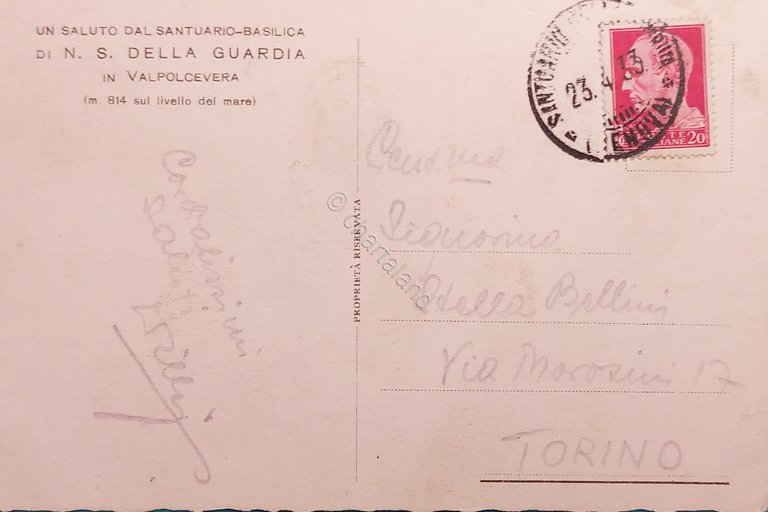 UN SALUTO DAL SANTUARIO-BASILICA
DI N. S. DELLA GUARDIA
IN VALPOLCEVERA
(m. 814 sul livello del mare)
Cordialissimi
Saluti
PROPRIETÀ RISERVATA
© chartaland
SANTUARIO
23.4.33
(GENOVA)
20
Signorina
Stella Bellini
Via Morosini 17
TORINO